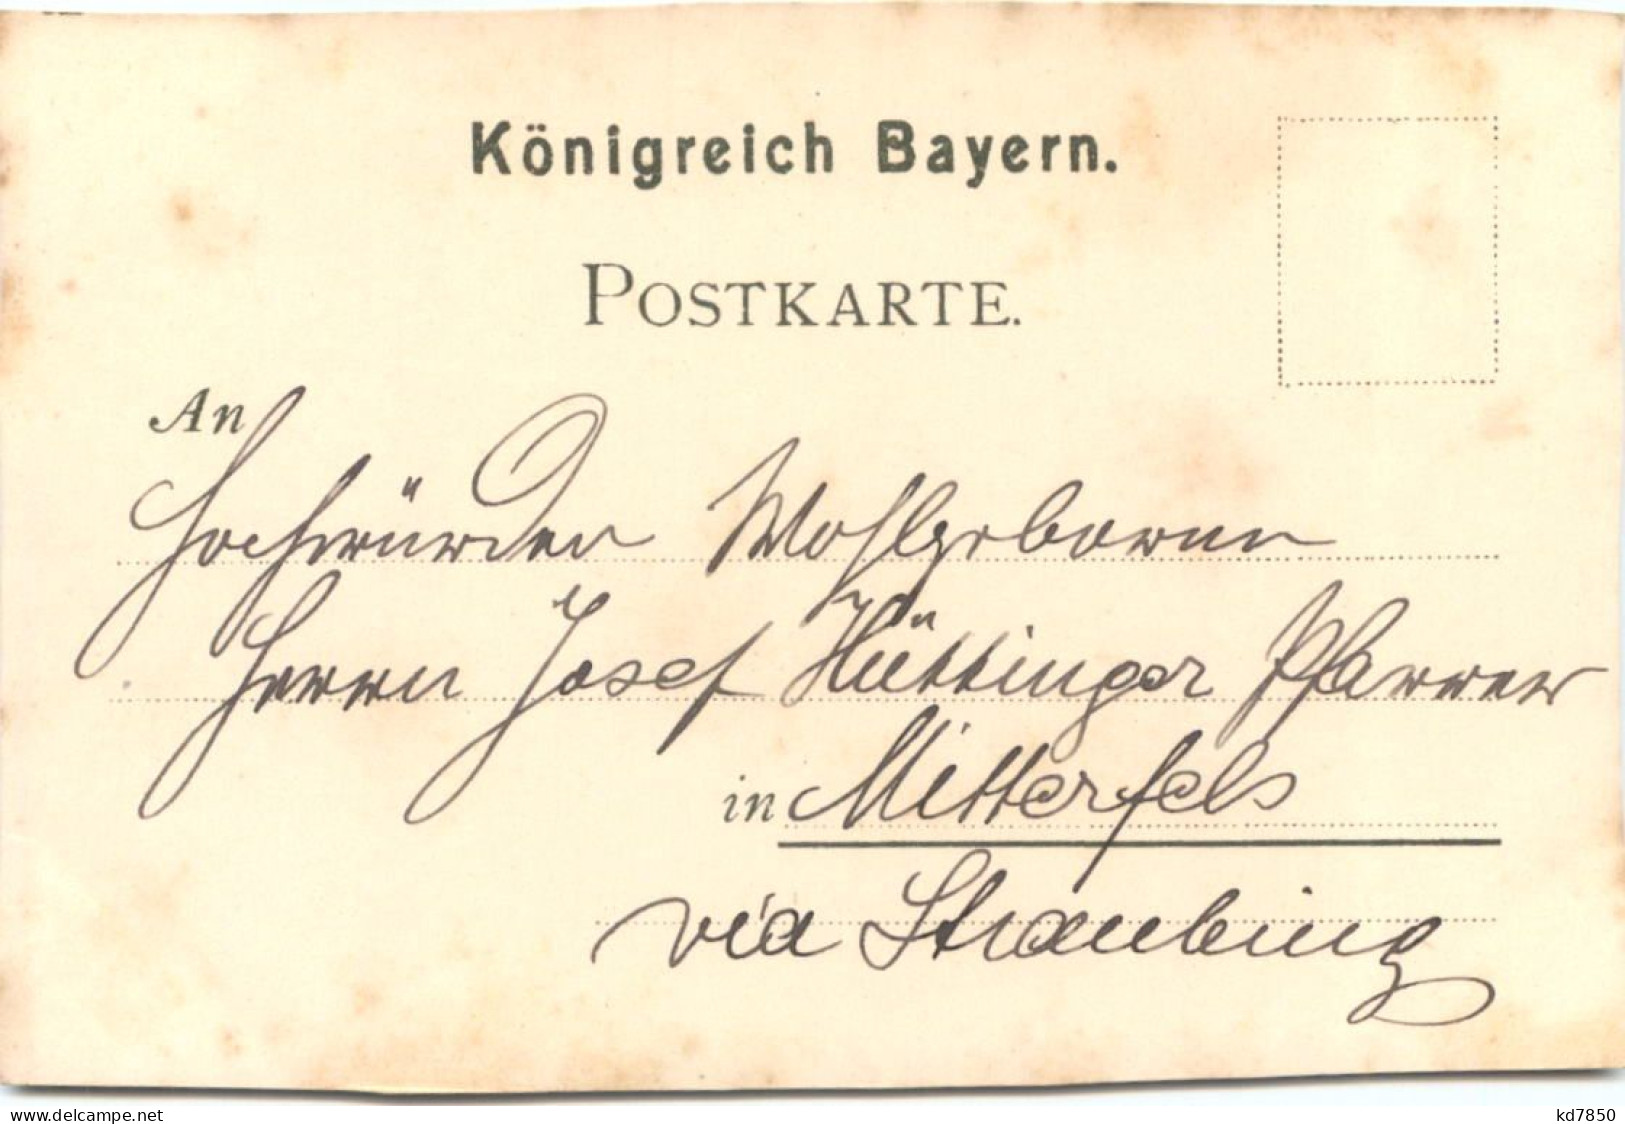 Königreich Bayern.
POSTKARTE.
An
Hochwürden Wohlgeboren
Herrn Josef Hüttinger Pfarrer
in Mitterfels
via Straubing
www.delcampe.net
kd7850